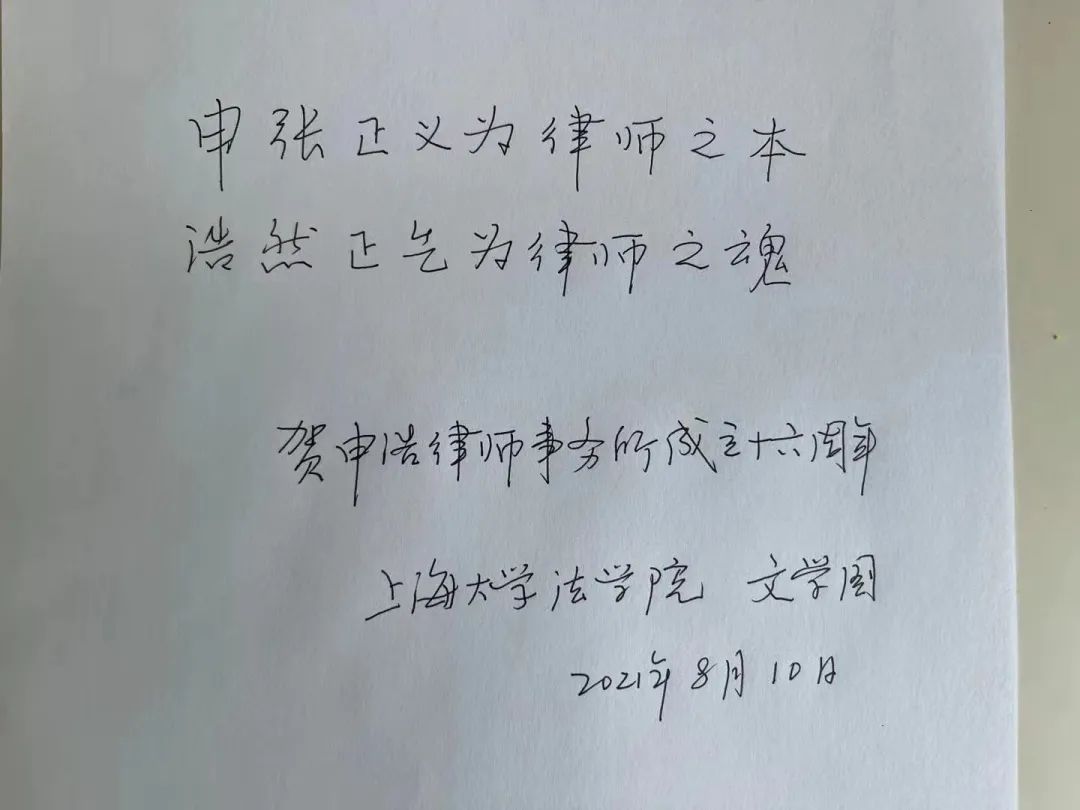 申张正义为律师之本
浩然正气为律师之魂
贺申浩律师事务所成立十六周年
上海大学法学院 文学国
2021年8月10日